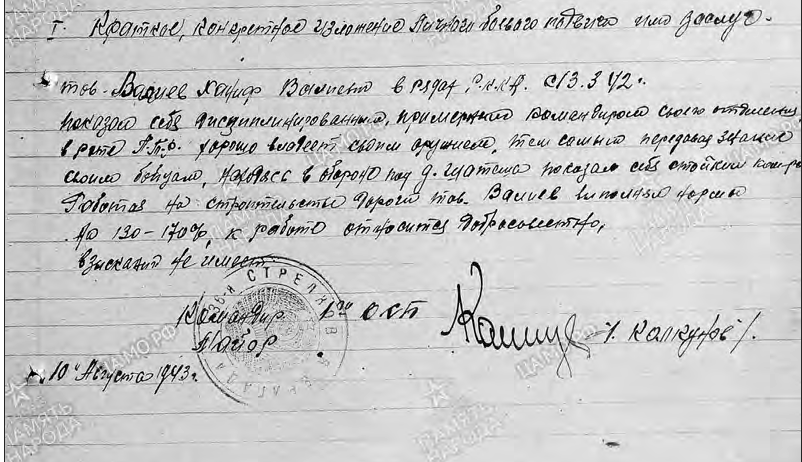 I. Краткое, конкретное изложение личного боевого подвига или заслуг.
тов. Валиев Ханиф Валиевич в рядах Р.К.К.А. с 13.3.42г.
показал себя дисциплинированным, примерным командиром своего отделения,
в роте хорошо владеет своим оружием, тем самым передавая знание
своим бойцам, находясь в обороне под д. показал себя стойким
Работая на строительстве дороги тов. Валиев выполнял нормы
на 130-170%, к работе относится добросовестно,
взысканий не имеет.
Командир ОСБ
Майор /. Калкунов /.
"10" Августа 1943г.
СТРЕЛКОВ
БРИГАДА
ПАМЯТЬ НАРОДА
ЦАМО.РФ